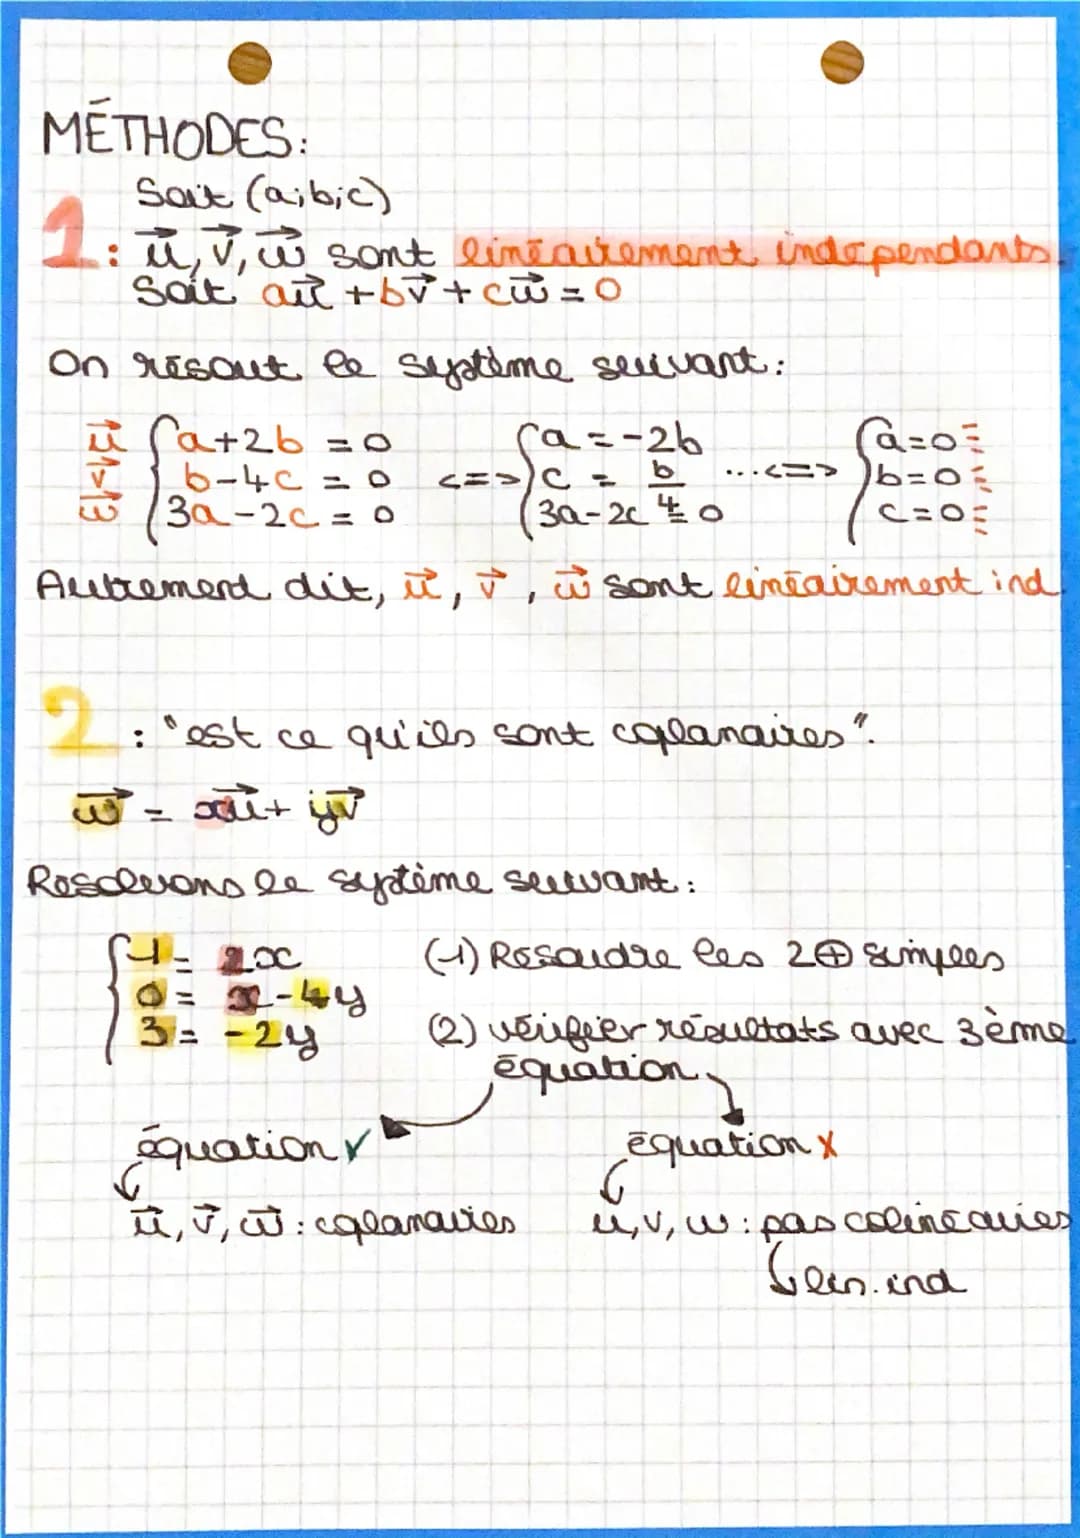 MÉTHODES:
Soit (a;b;c)
1: u⃗, v⃗, w⃗ sont linéairement indépendants.
Soit au⃗ + bv⃗ + cw⃗ = 0
On résout le système suivant:
u⃗ { a+2b = 0 { a = -2b { a=0
v⃗ { b-4c = 0 <=> { c = b/4 ...<=> { b=0
w⃗ { 3a-2c = 0 { 3a-2c = 0 { c=0
Autrement dit, u⃗, v⃗, w⃗ sont linéairement ind
2: "est ce qu'ils sont coplanaires".
w⃗ = xu⃗ + yv⃗
Resolvons le système suivant:
{ 1 = 2x (1) Résoudre les 2 ⊕ simples
{ 0 = x-4y
{ 3 = -2y (2) vérifier résultats avec 3ème
équation
équation ✓ équation X
u⃗, v⃗, w⃗: coplanaires u,v,w: pas colinéaires
↳ lin. ind